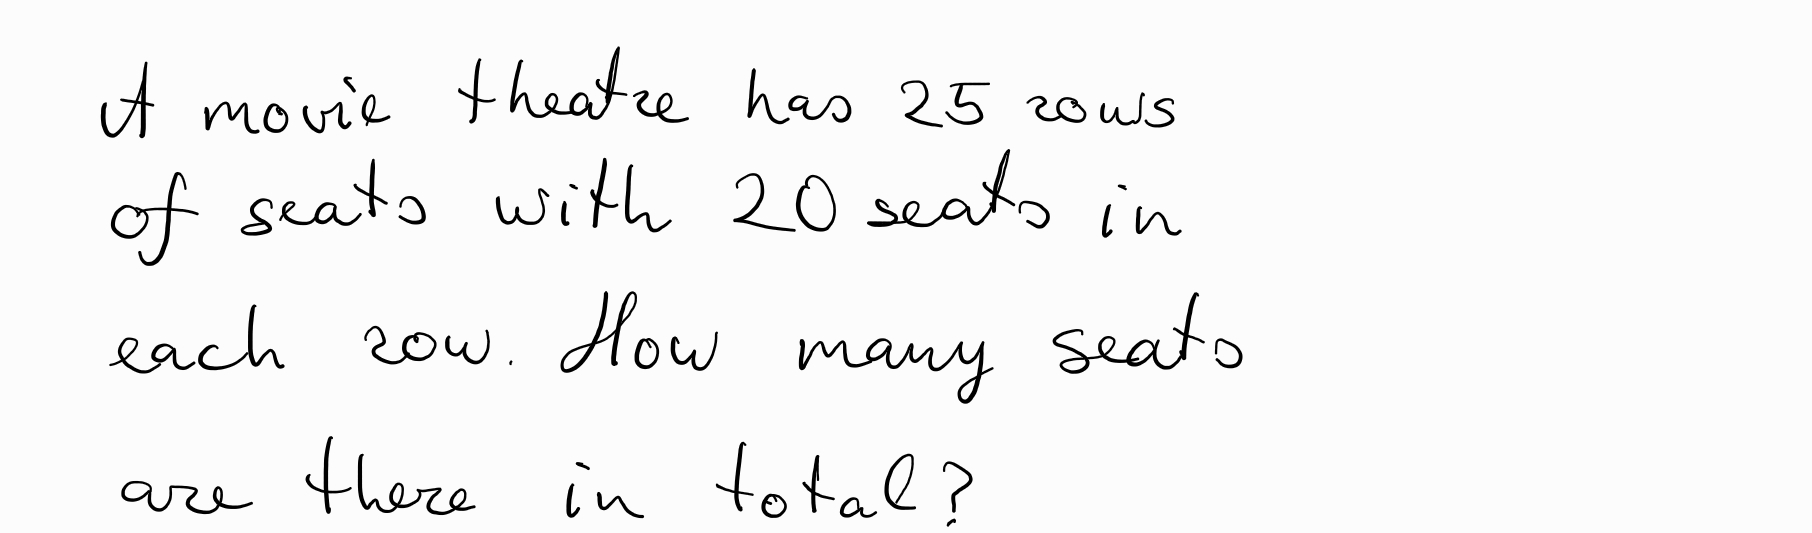 A movie theatre has 25 rows
of seats with 20 seats in
each row. How many seats
are there in total?